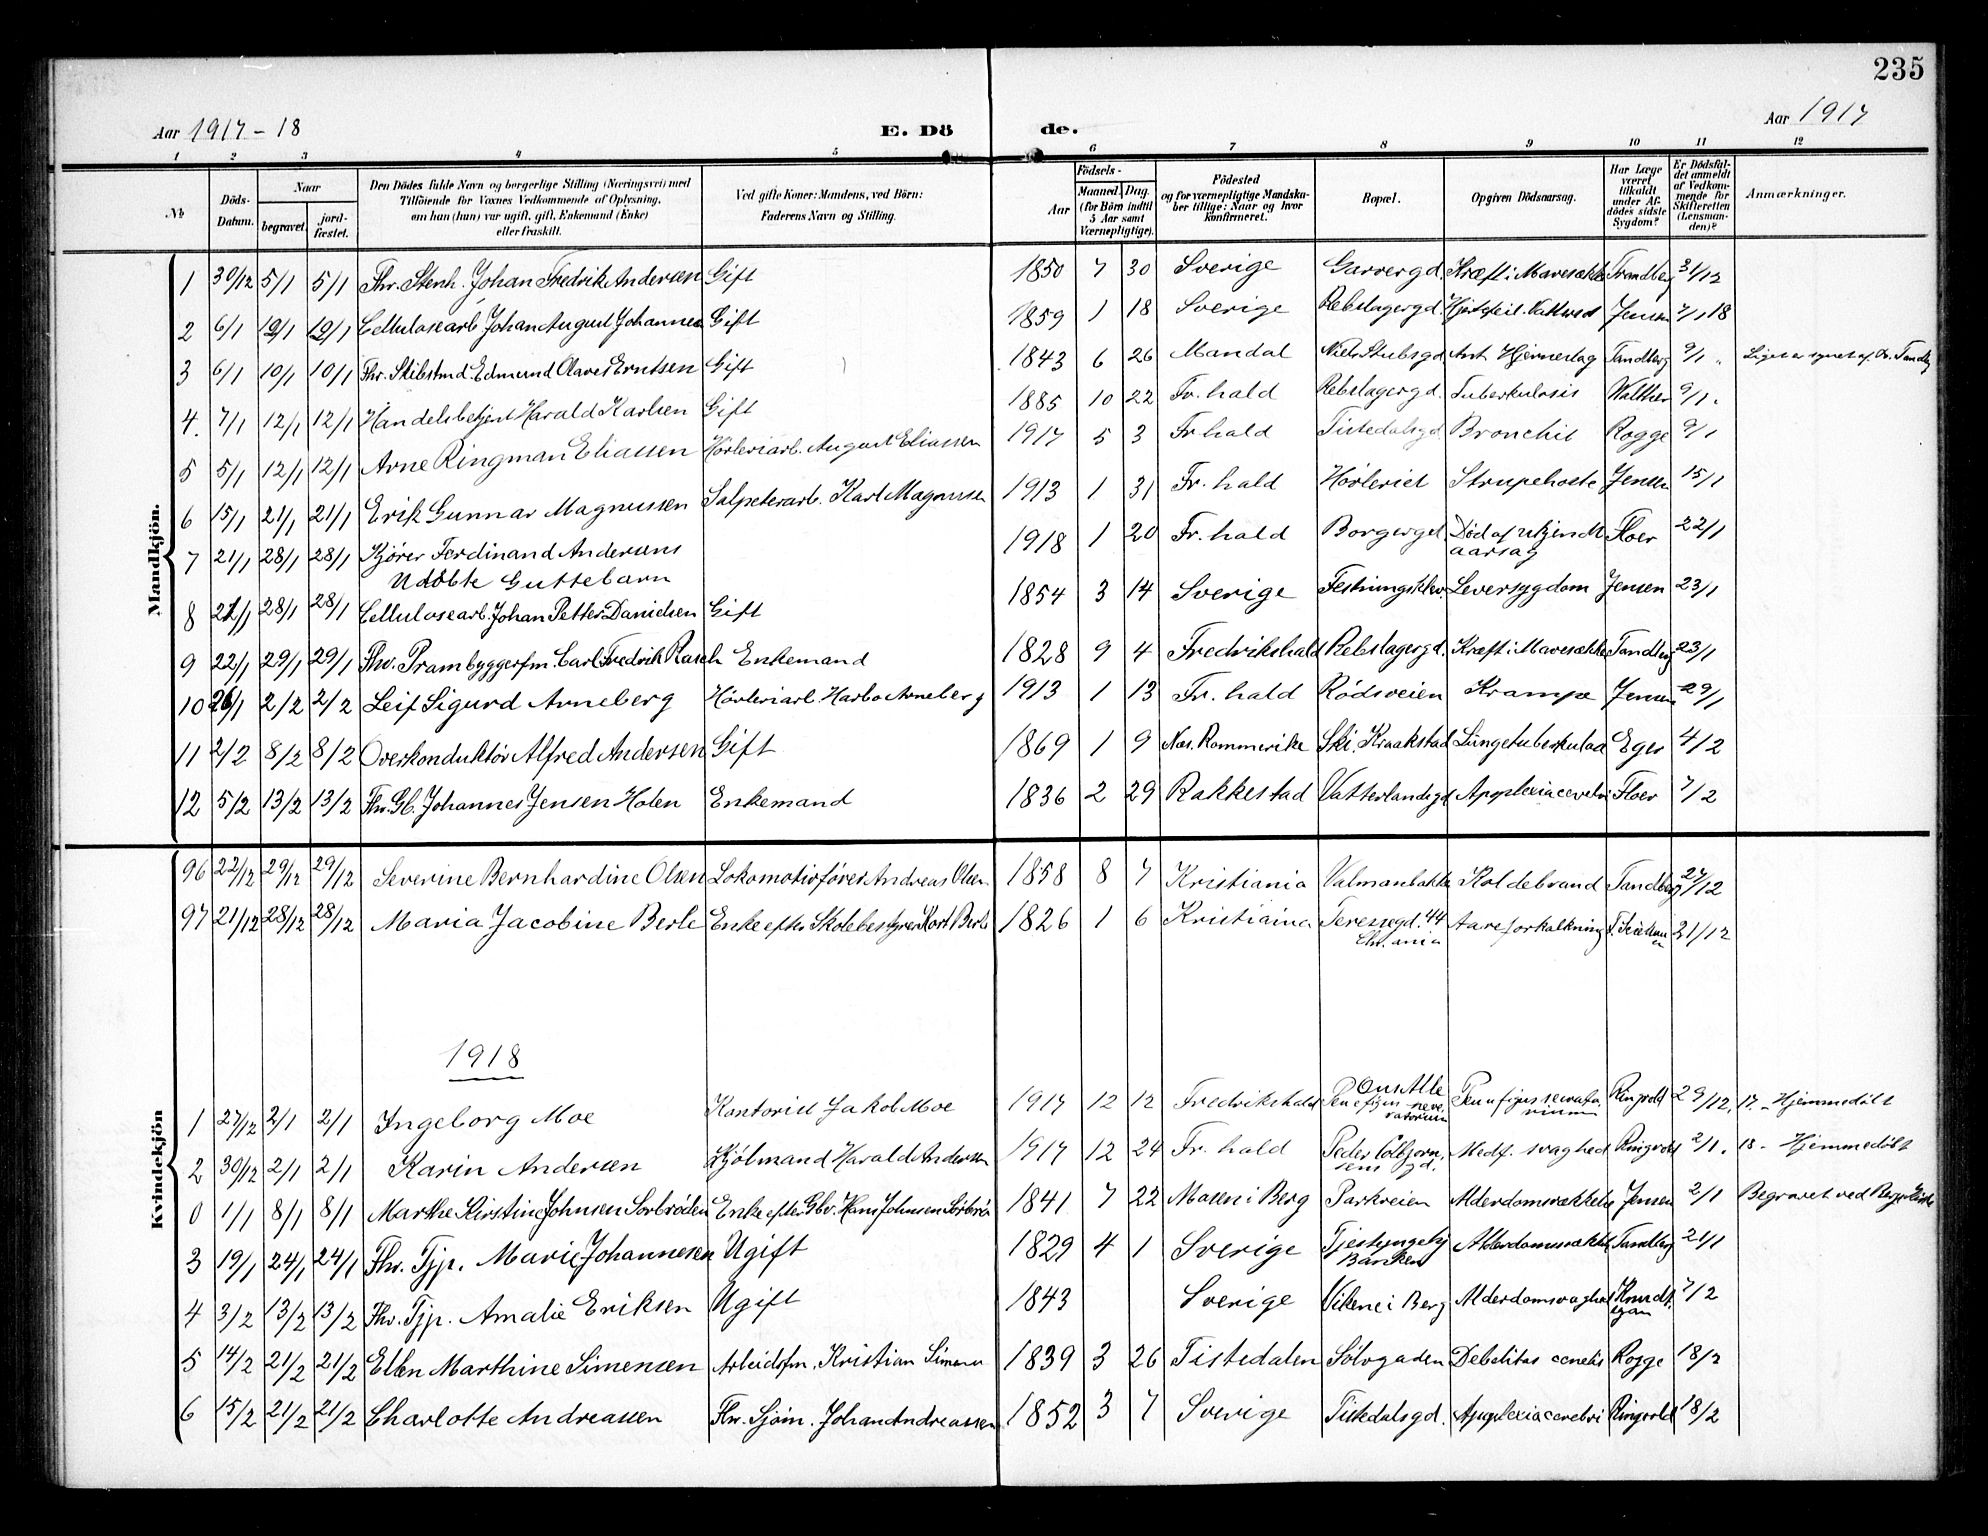 235
Aar 1917-18 E. Dö de. Aar 1917
1 2 3 4 5 6 7 8 9 10 11 12
No
Döds-Datum.
Naar
begravet. jordfæstet.
Den Dödes fulde Navn og borgerlige Stilling (Næringsvei) med Tilföiende for Voxnes Vedkommende af Oplysning, om han (hun) var ugift, gift, Enkemand (Enke) eller fraskilt.
Ved gifte Koner: Mandens, ved Börn: Faderens Navn og Stilling.
Födsels-
Aar Maaned. Dag.
(for Börn indtil 5 Aar samt Værnepligtige).
Födested og for værnepligtige Mandskaber tillige: Naar og hvor konfirmeret.
Bopæl.
Opgiven Dödsaarsag.
Har Læge været tilkaldt under Afdödes sidste Sygdom?
Er Dödsfaldet anmeldt af Vedkommende for Skifteretten (Lensmanden)?
Anmærkninger.
Mandkjön.
1 30/12 5/1 5/1 Fhv. Stenh. Johan Fredrik Andersen Gift 1850 7 30 Sverige Garvergd. Kræft i Mavesækken Tandberg 31/12
2 6/1 12/1 12/1 Cellulosearb. Johan August Johannesen Gift 1859 1 18 Sverige Rebslagergd. Hjertefeil. Jensen 7/1 18
3 6/1 10/1 10/1 Fhv. Skibstmd. Edmund Olaves Erntsen Gift 1843 6 26 Mandal Niels Stubsgd Hjerneslag Tandberg 9/1 "
4. 7/1 12/1 12/1 Handelsbetjent Harald Karlsen Gift 1885 10 22 Fr. hald Rebslagergd. Tuberkulosis Walther 9/1.
5 5/1 12/1 12/1 Arne Ringman Eliassen Hövleriarb. August Eliassen 1917 5 3 Fr hald Tistedalsgd Bronchit Rogge 9/1
6 15/1 21/1 21/1 Erik Gunnar Magnussen Salpeterarb. Karl Magnussen 1913 1 31 Fr. hald Hövleriet Strupehoste Jensen 15/1
7 21/1 28/1 28/1 Kjører Ferdinand Andersens 1918 1 20 Fr. hald Borgergd. Död af ukjendt Floer 22/1
Udöbte Guttebarn aarsag
8 21/1 28/1 28/1 Cellulosearb. Johan Petter Danielsen Gift 1854 3 14 Sverige Leversygdom Jensen 23/1
9 22/1 29/1 29/1 Fhv. Prambyggerfm. Carl Fredrik Rasch Enkemand 1828 9 4 Fredrikshald Rebslagergd. Kræft i Mavesækken Tandberg 23/1
10 26/1 2/2 2/2 Leif Sigurd Arneberg Hövleriarb. Arneberg 1913 1 13 Fr. hald Rödsveien Krampe Jensen 29/1
11 2/2 8/2 8/2 Overkonduktör Alfred Andersen Gift 1869 1 9 Nes. Rommerike Ski. Kraakstad Lungetuberkulos Eger 4/2
12 5/2 13/2 13/2 Fhv. Gb. Johannes Jensen Holen Enkemand 1836 2 29 Rakkestad Vatterlandsgd Apoplexia cerebri Floer 7/2
Kvindekjön
96 22/12 29/12 29/12 Severine Bernhardine Olsen Lokomotivförer Andreas Olsen 1858 8 7 Kristiania Valmanbakken Koldebrand Tandberg 27/12
97 21/12 28/12 28/12 Maria Jacobine Berle Enke efter Skolebestyrer Berle 1826 1 6 Kristiania Teressegd. 44 Aareforkalkning 21/12
Chr.ania
1918
1 27/12 2/1 2/1 Ingeborg Moe Kontorist Jakob Moe 1917 12 12 Fredrikshald Ringvold 29/12 17. Hjemmedöbt
2 30/12 2/1 2/1 Karin Andersen Harald Andersen 1917 12 24 Fr. hald Peder Colbjörnsens gd. Medf. svaghed Ringvold 2/1. 18 - Hjemmedöbt
0 1/1 8/1 8/1 Marthe Kirstine Johnsen Sorbröden Enke efter Gbr. Hans Johnsen Sorbrö 1841 7 22 Masen i Berg Parkveien Alderdomssvækkelse Jensen 2/1 Begravet ved
3 19/1 24/1 24/1 Fhv. Tjp. Marie Johannesen Ugift 1829 4 1 Sverige Alderdomssvækkelse Tandberg 21/1
Banken
4 3/2 13/2 13/2 Fhv. Tjp. Amalie Eriksen Ugift 1843 Sverige Vikene i Berg Alderdomssvaghed Knudtson 7/2
5 14/2 21/2 21/2 Ellen Marthine Simensen Arbeidsfm. Kristian Simensen 1839 3 26 Tistedalen Sölvgaden Debelitas senelis Rogge 18/2
6 15/2 21/2 21/2 Charlotte Andreassen Fhv. Sjöm. Johan Andreassen 1852 3 7 Sverige Tistedalsgd. Apoplexia cerebri Ringvold 18/2